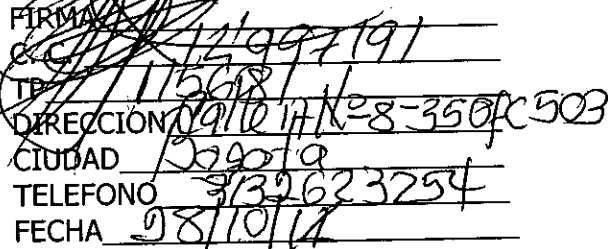 FIRMA
C.C. 12'997191
TP 115681
DIRECCION Calle 17 Nº 8-35 Ofc 503
CIUDAD Bogota
TELEFONO 3132623254
FECHA 28/10/11